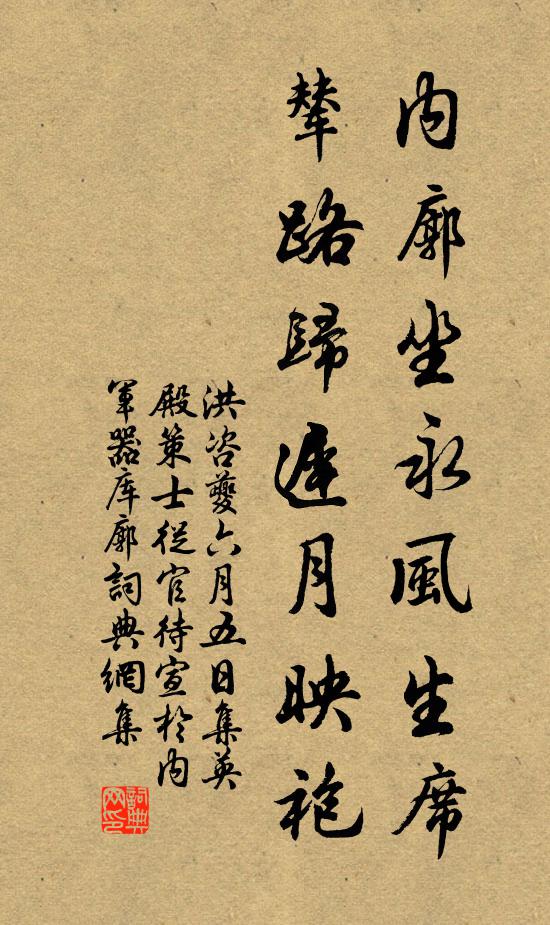 內廊坐永風生席
輦路歸遲月映袍
洪咨夔六月五日集英
殿策士從官待宣於內
軍器库廊詞典網集
詞典网印